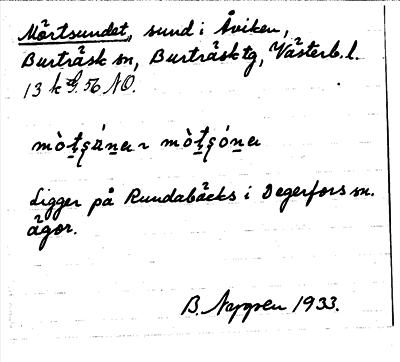 Mörtsundet, sund i Åviken,
Burträsk sn, Burträsk tg, Västerb. l.
13 k 56 NO.
Ligger på Rundabäcks i Degerfors sn.
ägor.
B. Nygren 1933.